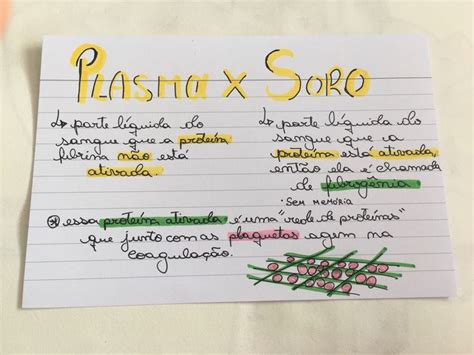 PLASMA X SORO
↳ parte líquida do
sangue que a proteína
fibrina não está
ativada.
↳ parte líquida do
sangue que a
proteína está ativada,
então ela é chamada
de fibrogênia
• SEM MEMÓRIA
* essa proteína ativada é uma "rede de proteínas"
que junto com as plaquetas agem na
coagulação.